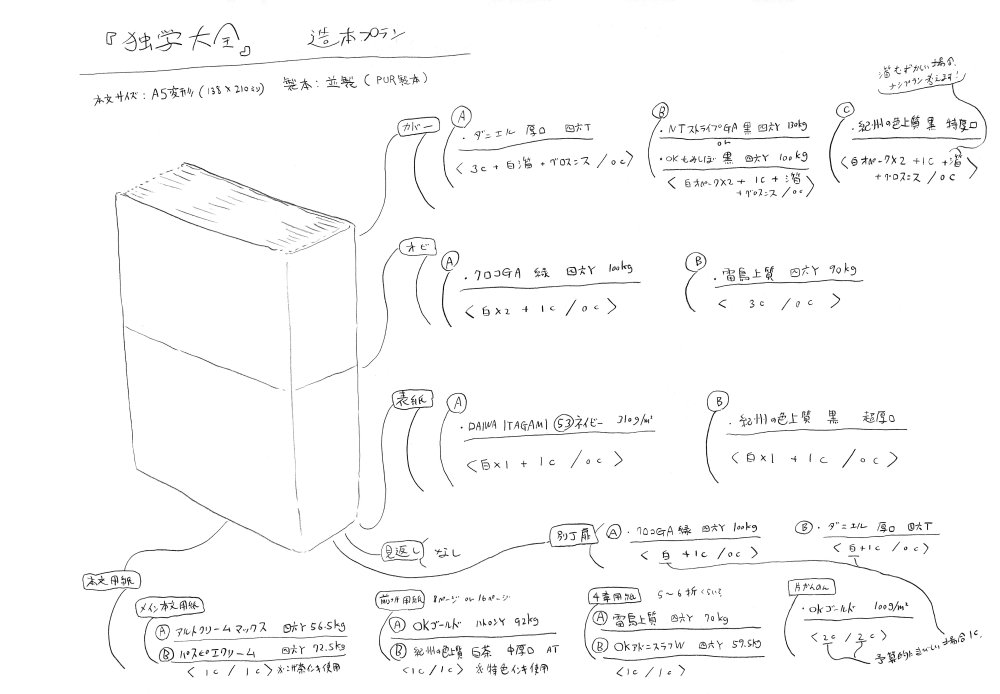 『独学大全』 造本プラン
本文サイズ：A5変形（138×210ミリ） 製本：並製（PUR製本）
箔むずかしい場合の、ナシプラン考えます！
カバー
Ⓐ ・ダニエル 厚口 四六T
〈 3c + 白箔 + グロスニス / 0c 〉
Ⓑ ・NTストライプGA 黒 四六Y 130kg
or
・OKもみしぼ 黒 四六Y 100kg
〈 白オペーク×2 + 1c + 箔 + グロスニス / 0c 〉
Ⓒ ・紀州の色上質 黒 特厚口
〈 白オペーク×2 + 1c + 箔 + グロスニス / 0c 〉
オビ
Ⓐ ・クロコGA 緑 四六Y 100kg
〈 白×2 + 1c / 0c 〉
Ⓑ ・雷鳥上質 四六Y 90kg
〈 3c / 0c 〉
表紙
Ⓐ ・DAIWA ITAGAMI 53 ネイビー 310g/m²
〈 白×1 + 1c / 0c 〉
Ⓑ ・紀州の色上質 黒 超厚口
〈 白×1 + 1c / 0c 〉
見返し なし
別丁扉
Ⓐ ・クロコGA 緑 四六Y 100kg
〈 白 + 1c / 0c 〉
Ⓑ ・ダニエル 厚口 四六T
〈 白 + 1c / 0c 〉
本文用紙
メイン本文用紙
Ⓐ アルトクリームマックス 四六Y 56.5kg
Ⓑ パスピエクリーム 四六Y 72.5kg
〈 1c / 1c 〉 ※コゲ茶インキ使用
前付用紙 8ページ or 16ページ
Ⓐ OKゴールド ハトロンY 92kg
Ⓑ 紀州の色上質 白茶 中厚口 AT
〈 1c / 1c 〉 ※特色インキ使用
4章用紙 5〜6折くらい？
Ⓐ 雷鳥上質 四六Y 70kg
Ⓑ OKアドニスラフW 四六Y 59.5kg
〈 1c / 1c 〉
片かんのん
・OKゴールド 100g/m²
〈 2c / 2c 〉
予算的にきびしい場合1c.